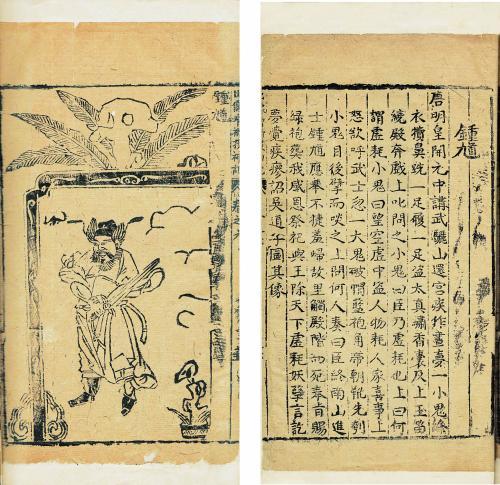 鍾馗
唐明皇開元中講武驪山還宮疾作晝夢一小鬼絳
衣犢鼻跣一足履一足盜太真繡香囊及上玉笛
繞殿奔戲上叱問之小鬼曰臣乃虛耗也上曰何
謂虛耗小鬼曰望空虛中盜人物耗人家喜事上
怒欲呼武士忽一大鬼破帽藍袍角帶朝靴先刳
小鬼目後擘而啖之上問何人奏曰臣終南山進
士鍾馗應舉不捷羞歸故里觸殿階而死奉旨賜
綠袍葬我感恩祭祀與王除天下虛耗妖孽言訖
夢覺疾瘳詔吳道子圖其像
鍾馗